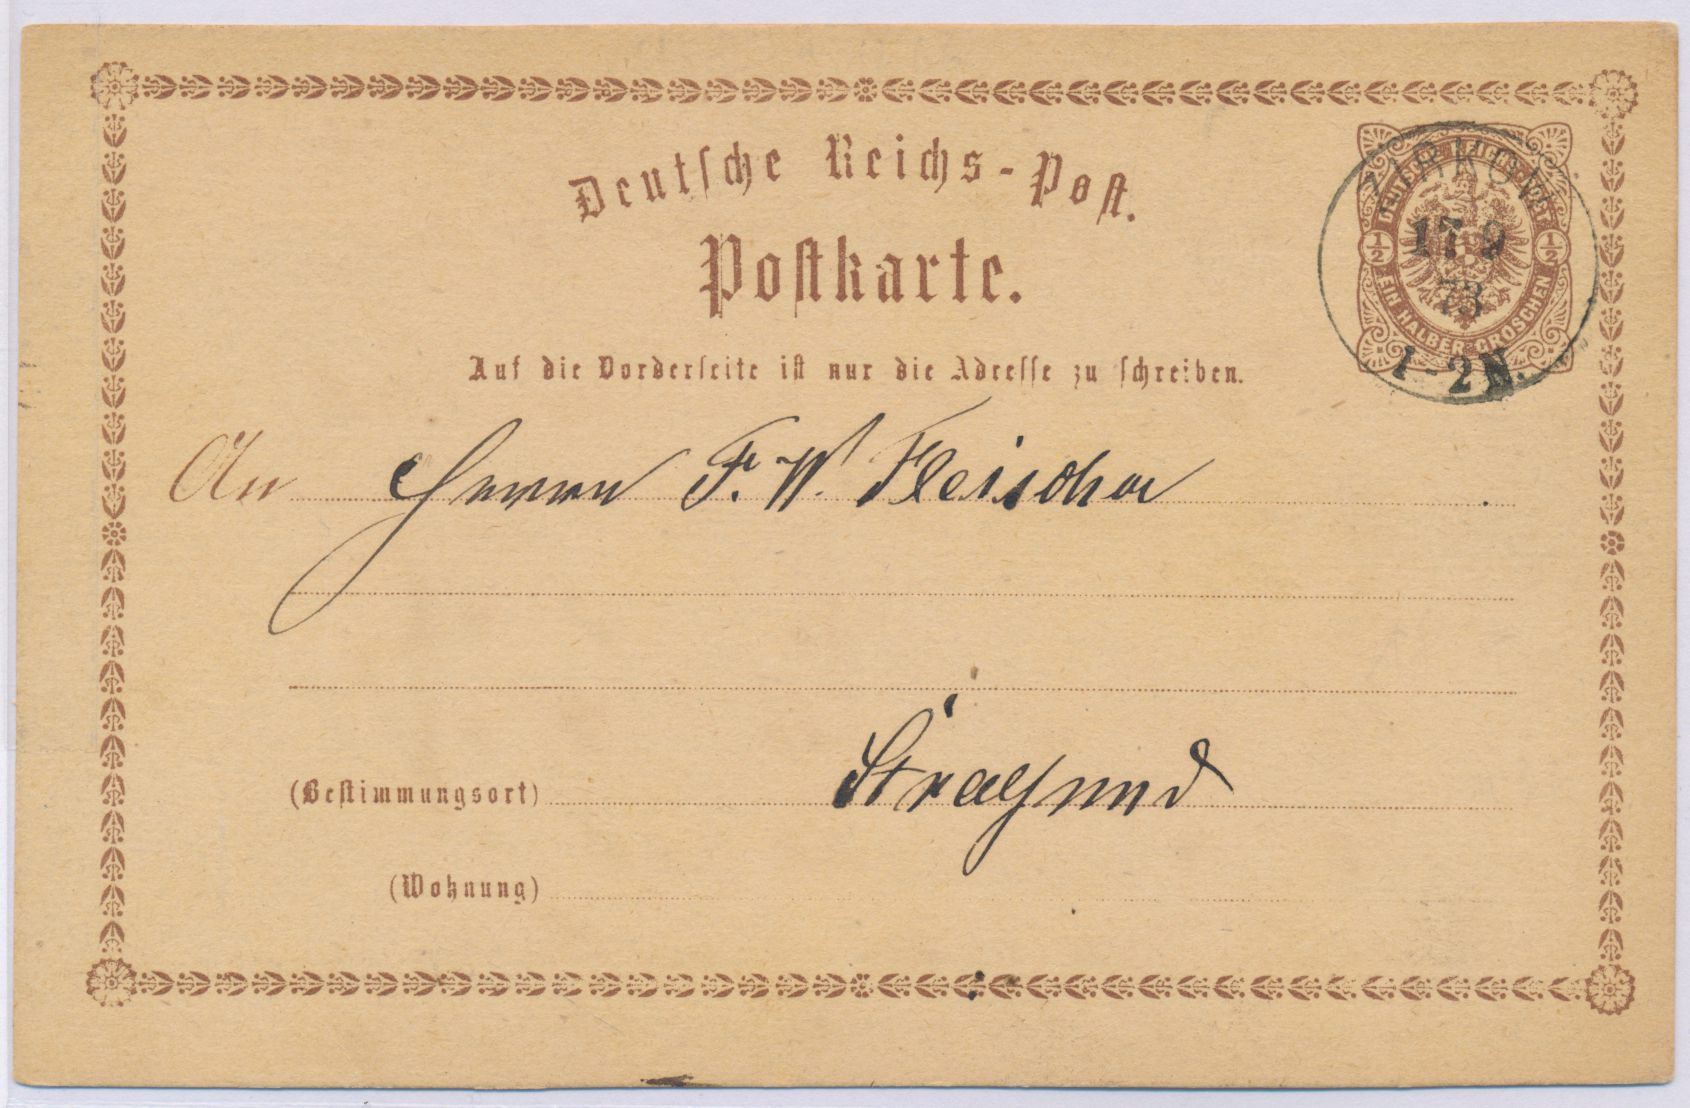 Deutsche Reichs-Post.
Postkarte.
ZIRKOW
17 9
73
1-2N.
DEUTSCHE REICHSPOST
1/2 1/2
EIN HALBER GROSCHEN
Auf die Vorderseite ist nur die Adresse zu schreiben.
An Herrn F. W. Fleischer
Stralsund
(Bestimmungsort)
(Wohnung)